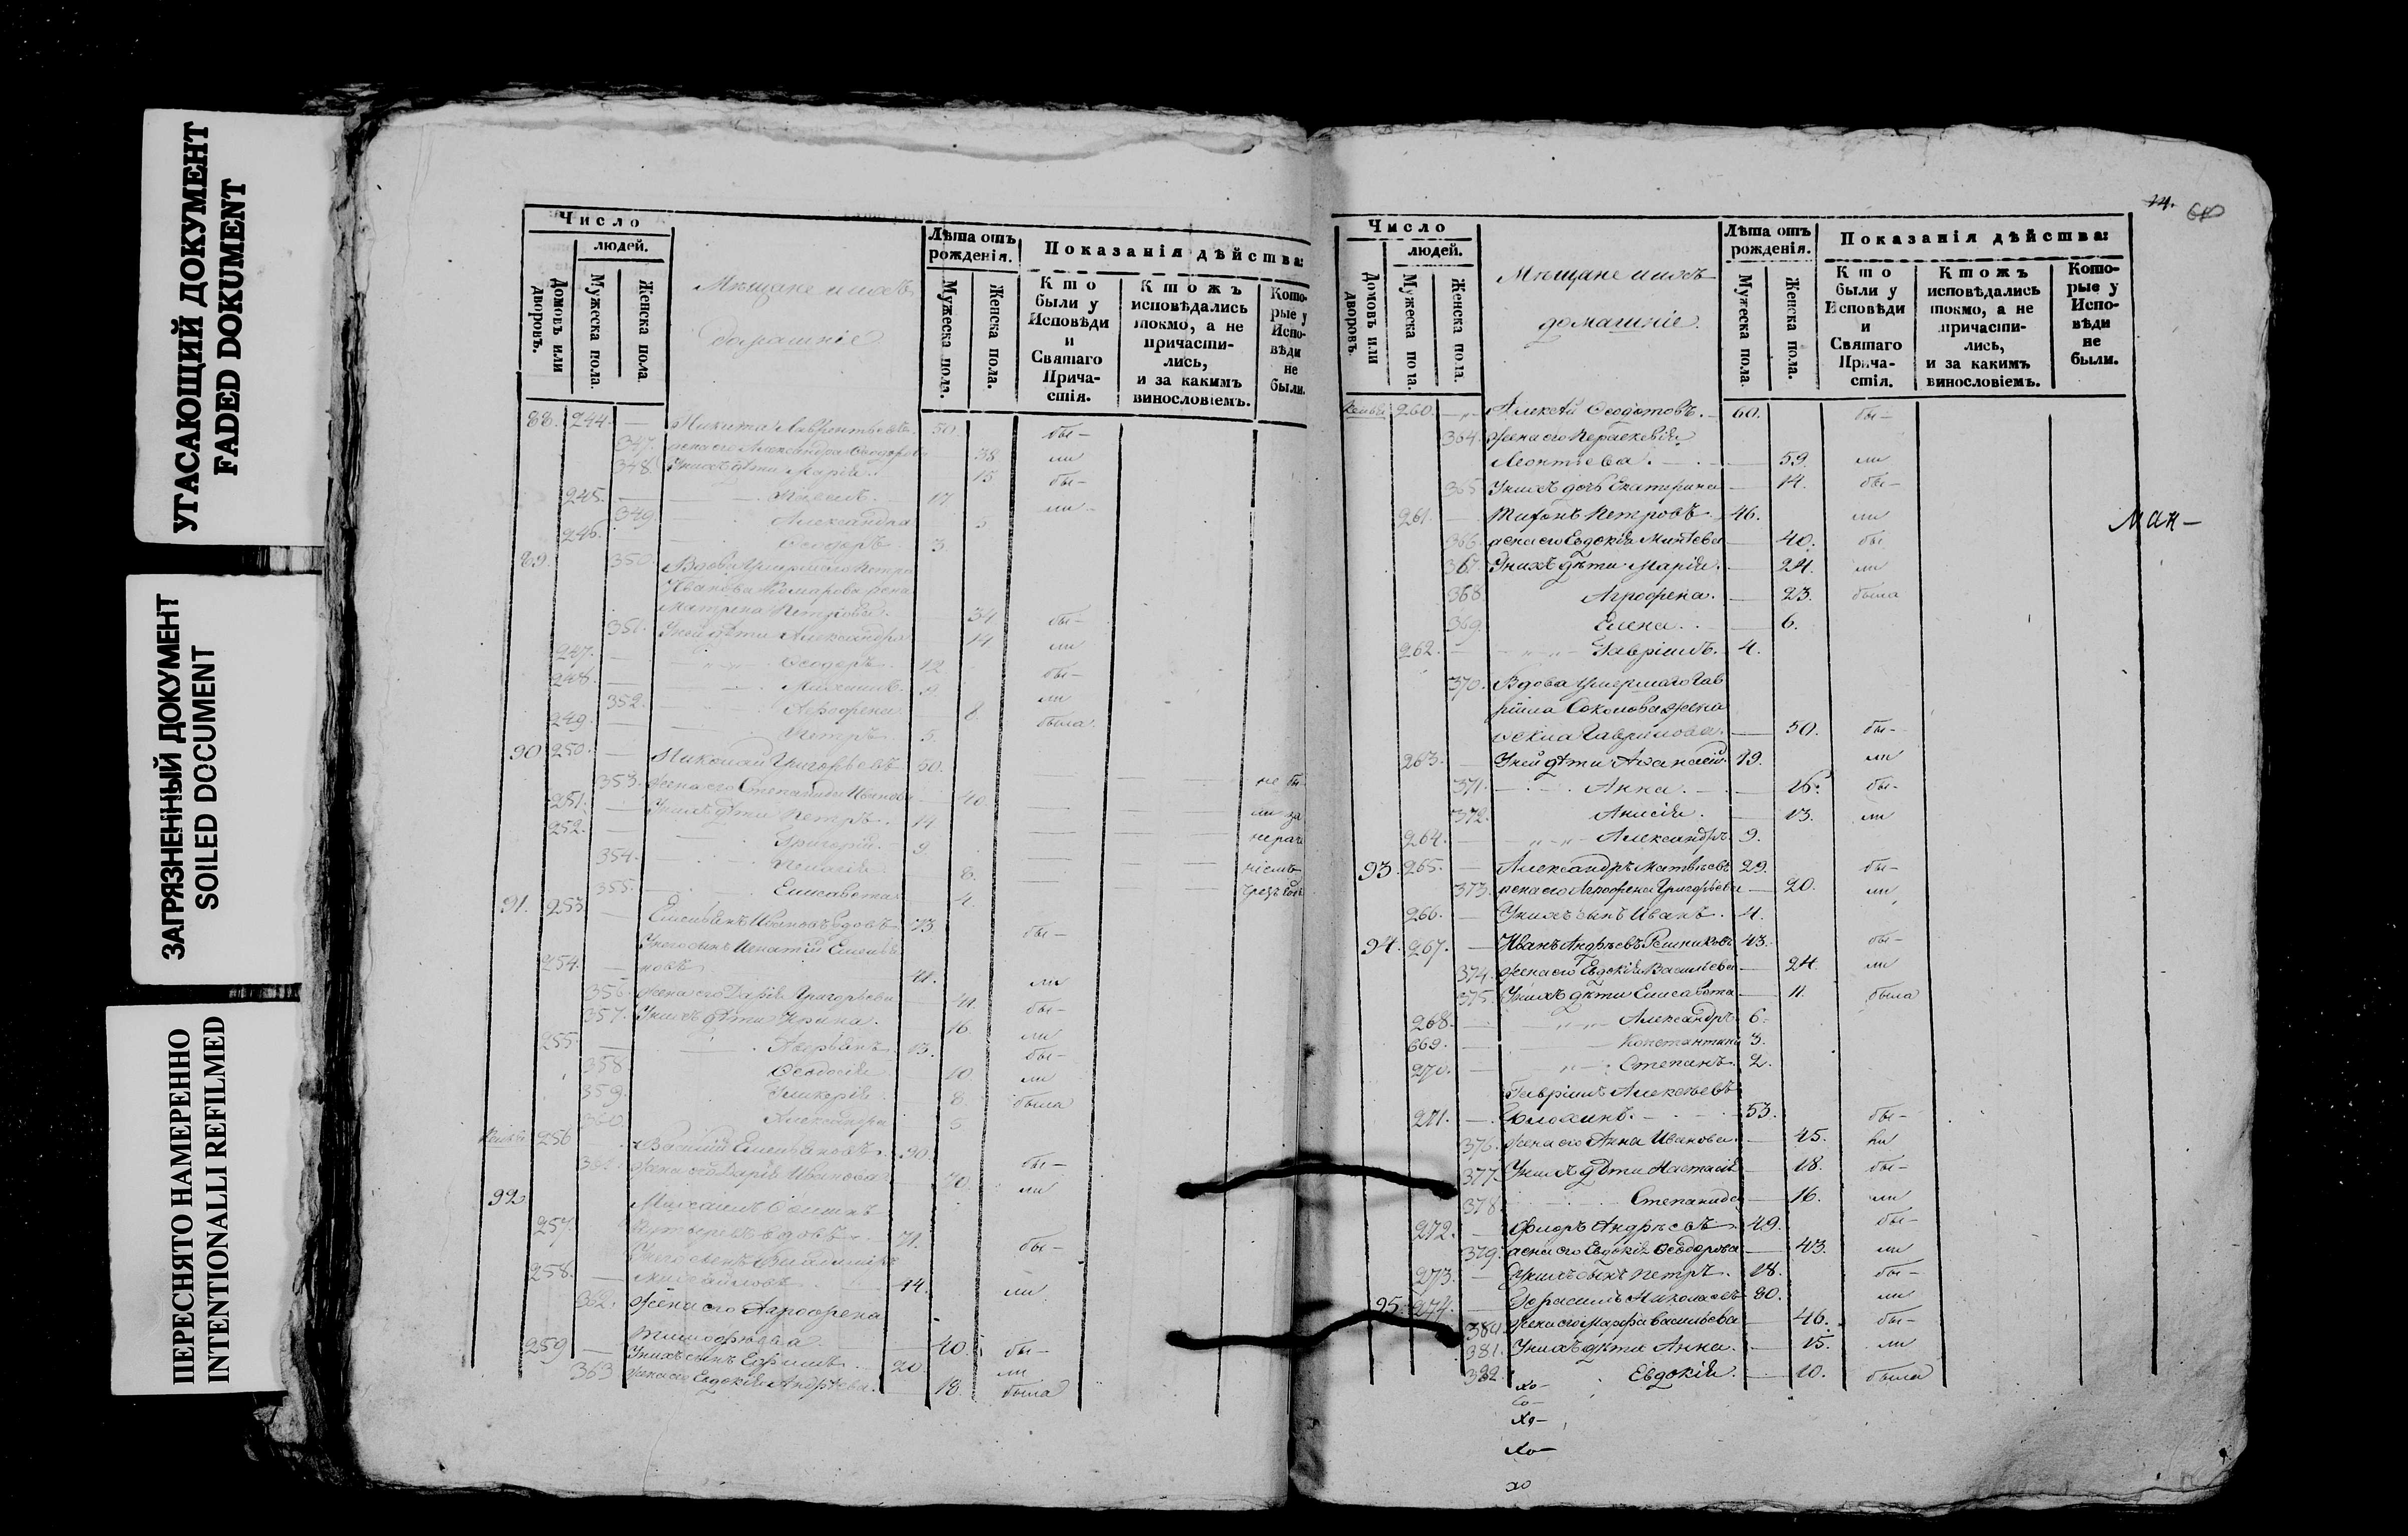 УГАСАЮЩИЙ ДОКУМЕНТ
FADED DOKUMENT
ЗАГРЯЗНЕННЫЙ ДОКУМЕНТ
SOILED DOCUMENT
ПЕРЕСНЯТО НАМЕРЕННО
INTENTIONALLI REFILMED
Число
людей.
Домовъ или дворовъ.
Мужеска пола.
Женска пола.
Мѣщане и ихъ
домашніе
Лѣта отъ рожденія.
Мужеска пола.
Женска пола.
Показанія дѣйства:
Кто были у Исповѣди и Святаго Причастія.
Ктожъ исповѣдались токмо, а не причастились, и за какимъ винословіемъ.
Которые у Исповѣди не были.
88. 244. — Никита Лаврентьевъ. 50. бы-
347. жена его Александра Ѳеодорова 38 ли
348. У нихъ дѣти Марія. 15 бы-
245. — 17 ли
349. Александра 5
246. Ѳеодоръ 3.
89. 350. Вдова умершаго Петра
Иванова Комарова жена
Матрена Петрова. 34 бы-
351. У ней дѣти Александра 14 ли
247. — Ѳеодоръ. 12 бы-
248. — Михаилъ. 9. ли
352. Агрофена. 8. была.
249. Петръ. 5.
90 250. — Николай Григорьевъ 50.
353. жена его Степанида Иванова 40. — — не бы-
251. — У нихъ дѣти Петръ. 14 — — ли за
252. — Григорій. 9. — — нерач
354. Пелагія 8. — — ніемъ
355. Елисавета 4.
91. 253. — Емельянъ Ивановъ вдовъ 73. бы-
У него сынъ Игнатій Емелья
254. — новъ 41. ли
356. жена его Дарія Григорьева 41. бы-
357. У нихъ дѣти Ирина. 16. ли
255. — Аверьянъ. 13. бы-
358. Ѳеодосія 10 ли
359. Гликерія 8. была
360. Александра 5.
256 Василій Емельяновъ. бы-
361. жена его Дарія Иванова ли
92 Михаилъ
257. вдовъ. 71. бы-
У него сынъ Владиміръ
258. — Михайловъ 44. ли
362. жена его Агрофена
Тимофѣева. 40. бы-
259 — У нихъ сынъ Ефимъ. 20 ли
363 жена его Евдокія Андрѣева. 18. была
14. 60
Число
людей.
Домовъ или дворовъ.
Мужеска пола.
Женска пола.
Мѣщане и ихъ
домашніе.
Лѣта отъ рожденія.
Мужеска пола.
Женска пола.
Показанія дѣйства:
Кто были у Исповѣди и Святаго Причастія.
Ктожъ исповѣдались токмо, а не причастились, и за какимъ винословіемъ.
Которые у Исповѣди не были.
260. — Алексѣй Ѳеодотовъ. 60. бы-
364. жена его Параскевія
Леонтіева. — 59. ли
365. У нихъ дочь Екатерина — 14. бы-
261. — Петровъ. 46. ли
366. жена его Евдокія — 40. бы
367. У нихъ дѣти Марія. — 24. ли
368. Агрофена. — 23. была
369. Елена. — 6.
262. — Гавріилъ. 4.
370. Вдова умершаго Гав
ріила Соколова жена
Гаврилова. — 50. бы-
263. — У ней дѣти Аѳанасій 19. ли
371. Анна. — 16. бы-
372. Анисія. 13. ли
264. — Александръ 9.
93. 265. — Александръ Матвѣевъ 29. бы-
373. жена его Агрофена Григорьева — 20. ли
266. — У нихъ сынъ Иванъ. 4.
94. 267. — Иванъ Андрѣевъ 43. бы-
374. жена его Евдокія Васильева — 24. ли
375. У нихъ дѣти Елисавета — 11. была
268. Александръ 6.
669. Константинъ 3.
270. — Степанъ. 2.
Гавріилъ Алексѣевъ
271. — 53. бы-
376. жена его Анна Иванова. — 45. ли
377. У нихъ дѣти Настасія — 18. бы-
378. Степанида — 16. ли
272. — Флоръ Андрѣевъ. 49. бы-
379. жена его Евдокія Ѳеодорова — 43. ли
273. — У нихъ сынъ Петръ. 18. бы-
95. 274. — Николаевъ ли
380. жена его Марфа Васильева 46. бы-
381. У нихъ дѣти Анна. — 15. ли
382. Евдокія. — 10. была
Ман-
хо-
со-
хо-
хо-
хо